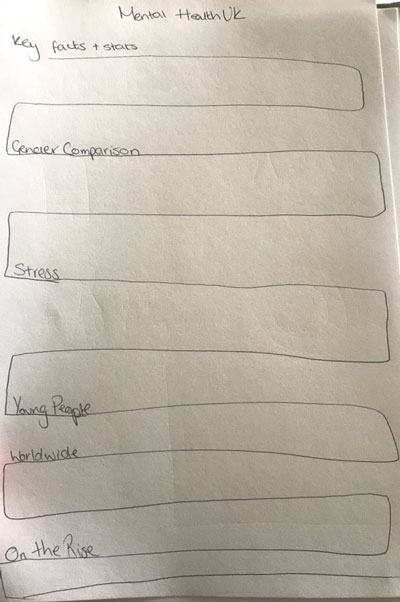 Mental Health UK
Key facts + stats
Gender Comparison
Stress
Young People
Worldwide
On the Rise